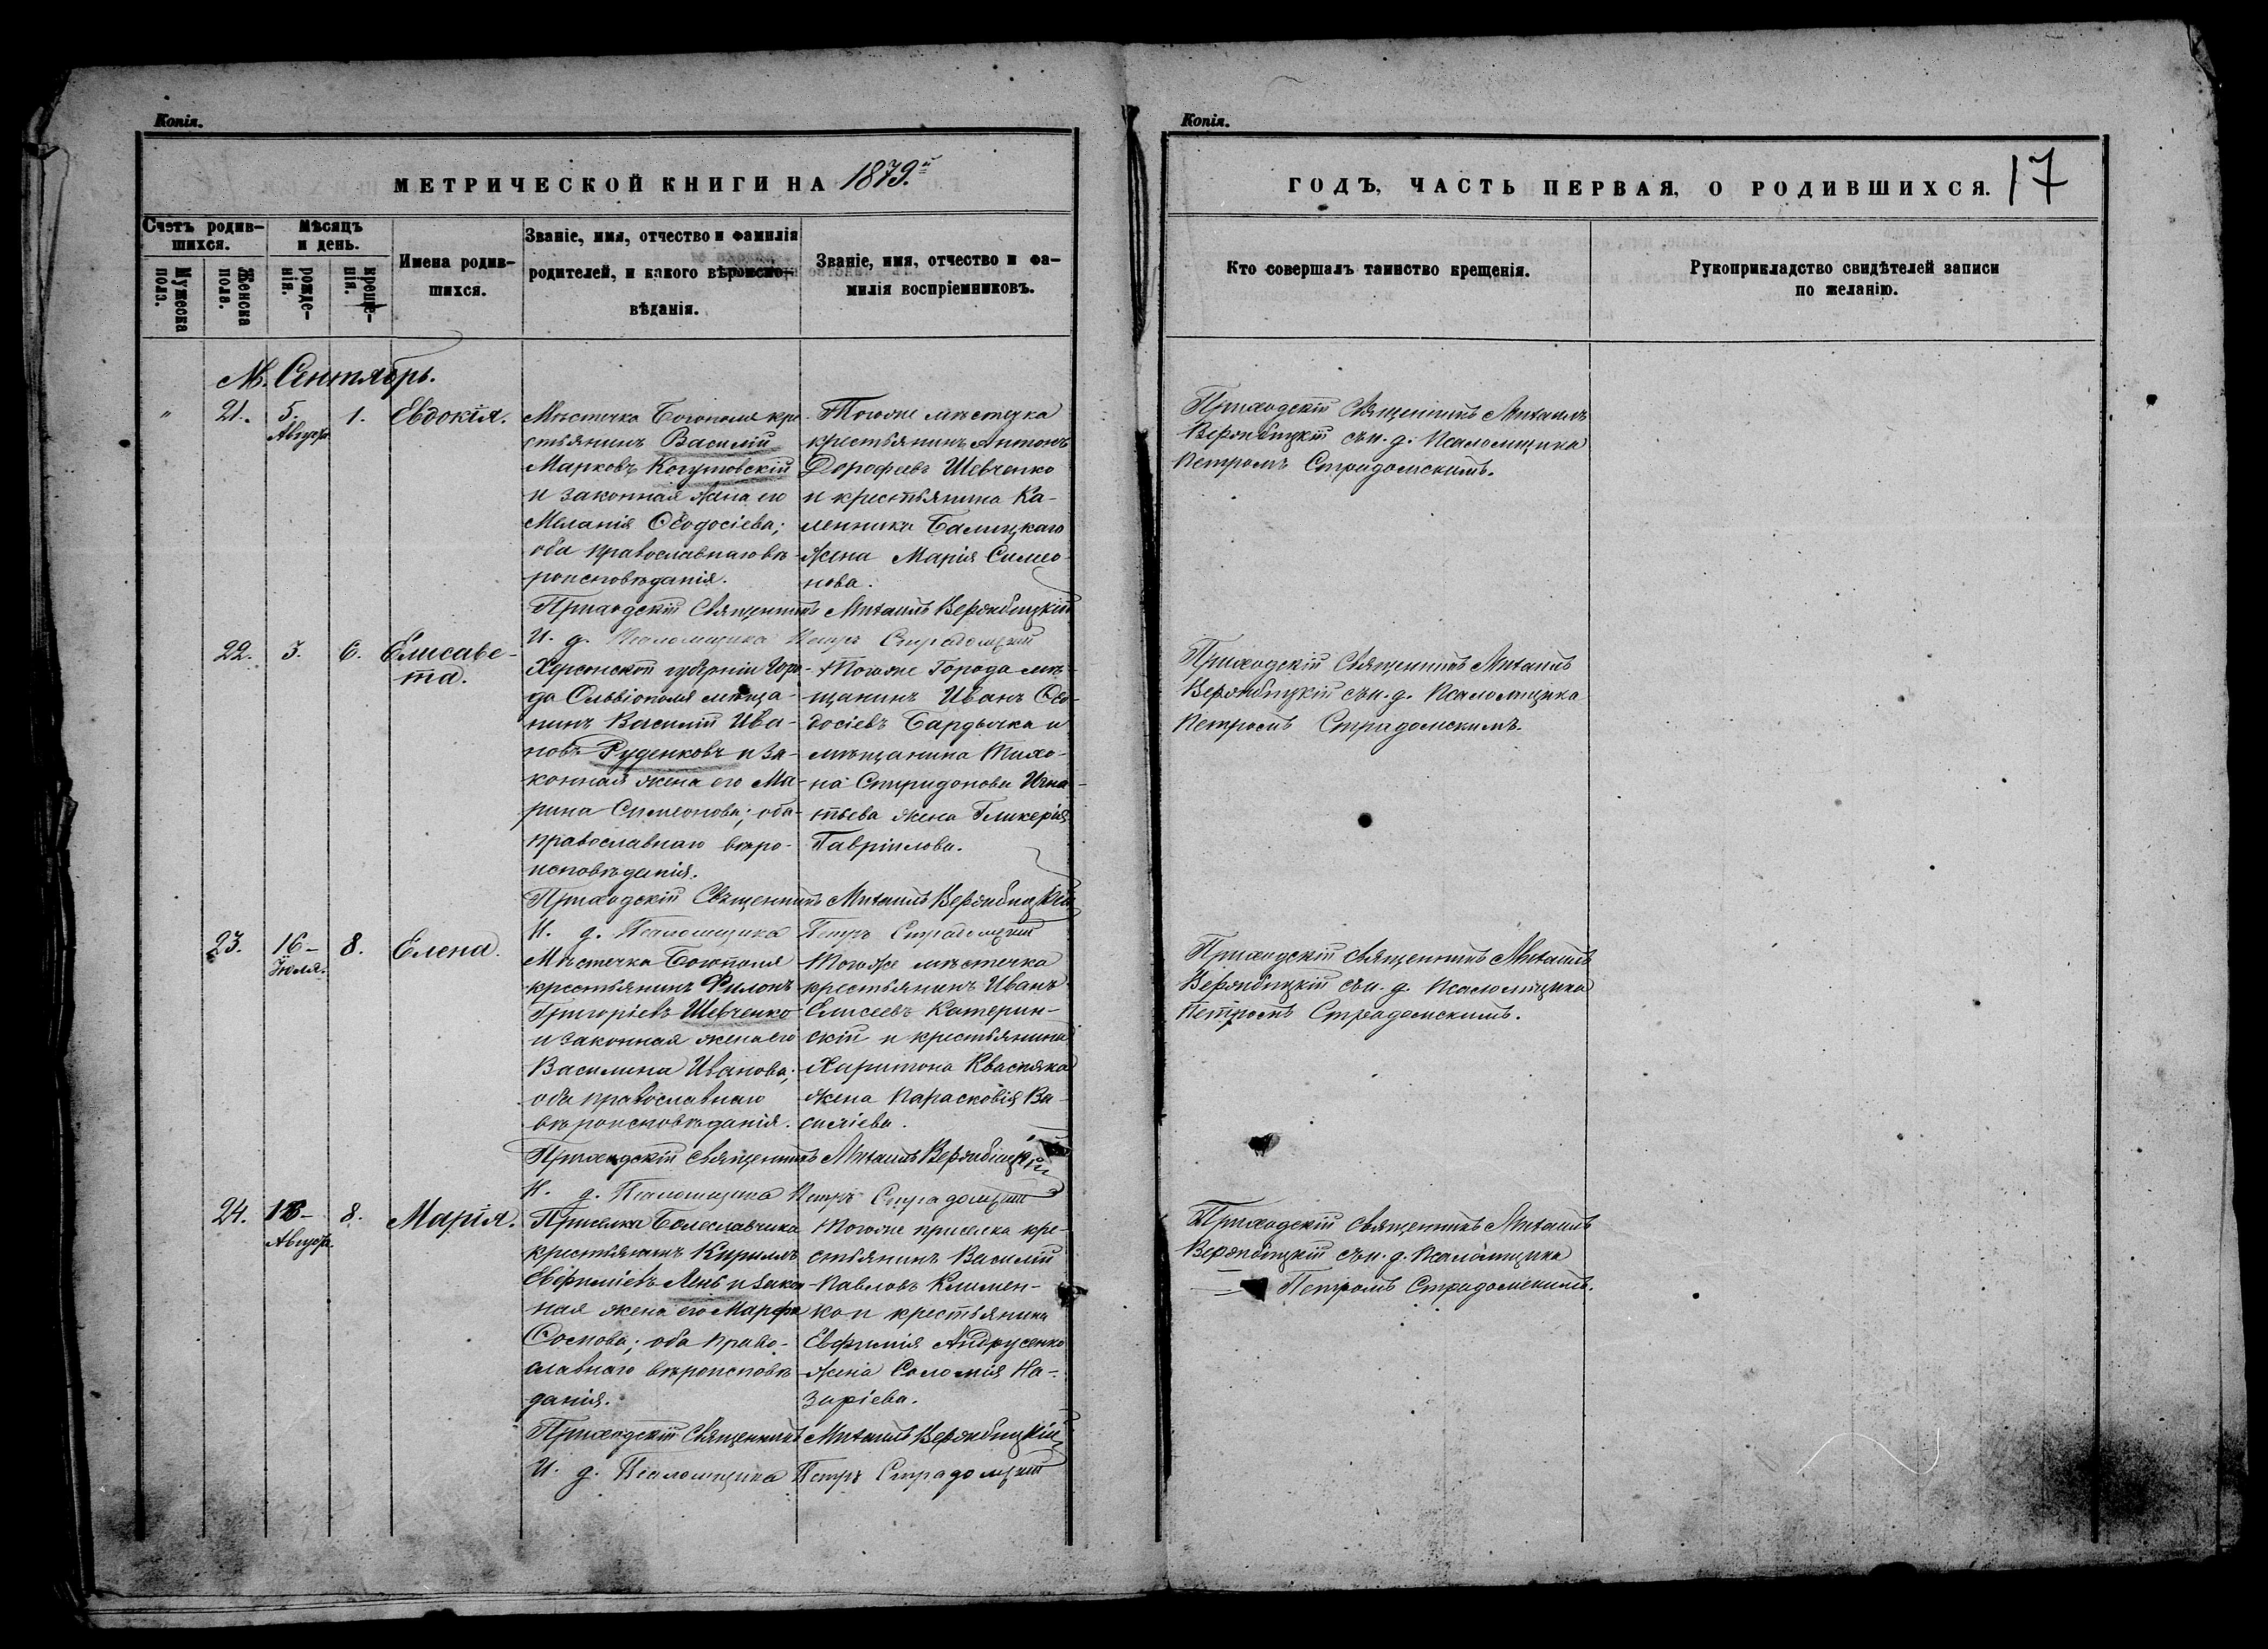 Копія.
МЕТРИЧЕСКОЙ КНИГИ НА 1879.й
Счетъ родив-
шихся.
Мѣсяцъ
и день.
Имена родив-
шихся.
Званіе, имя, отчество и фамилія
родителей, и какого вѣроиспо-
вѣданія.
Званіе, имя, отчество и фа-
милія воспріемниковъ.
Мужеска
пола.
Женска
пола.
рожде-
нія.
креще-
нія.
М. Сентябрь.
" 21. 5. Августа 1. Евдокія.
Мѣстечка Богополя кре-
стьянинъ Василій
Марковъ Когутовскій
и законная жена его
Меланія Ѳеодосіева;
оба православнаго вѣ-
роисповѣданія.
Тогоже мѣстечка
крестьянинъ Антонъ
Дорофеевъ Шевченко
и крестьянина Ка-
ленника Балицкаго
жена Марія Симео-
нова.
Приходскій Священникъ Михаилъ Вержбицкій
И. д. Псаломщика Петръ Страдомскій
22. 3. 6. Елисаве-
та.
Херсонской губерніи горо-
да Ольвіополя мѣща-
нинъ Василій Ива-
новъ Руденковъ и за-
конная жена его Ма-
рина Симеонова; оба
православнаго вѣро-
исповѣданія.
Тогоже Города мѣ-
щанинъ Иванъ Ѳео-
досіевъ Бардычка и
мѣщанина Тихо-
на Спиридонова Игна-
тьева жена Гликерія
Гавріилова.
Приходскій Священникъ Михаилъ Вержбицкій
И. д. Псаломщика Петръ Страдомскій
23. 16- Іюля. 8. Елена.
Мѣстечка Богополя
крестьянинъ Филонъ
Григоріевъ Шевченко
и законная жена его
Василина Иванова;
оба православнаго
вѣроисповѣданія.
Тогоже мѣстечка
крестьянинъ Иванъ
Елисеевъ Катерин-
скій и крестьянина
Харитона Квасняка
жена Парасковія Ва-
силіева.
Приходскій священникъ Михаилъ Вержбицкій
И. д. Псаломщика Петръ Страдомскій
24. Августа. 8. Марія.
Приселка Болеславчика
крестьянинъ Кириллъ
Евфиміевъ Лень и закон-
ная жена его Марфа
оба право-
славнаго вѣроисповѣ-
данія.
Тогоже приселка кре-
стьянинъ Василій
Павловъ Климен-
ко и крестьянина
Евфимія Андрусенко
жена Соломія На-
заріева.
Приходскій Священникъ Михаилъ Вержбицкій
И. д. Псаломщика Петръ Страдомскій
Копія.
ГОДЪ, ЧАСТЬ ПЕРВАЯ, О РОДИВШИХСЯ. 17
Кто совершалъ таинство крещенія.
Рукоприкладство свидѣтелей записи
по желанію.
Приходскій Священникъ Михаилъ
Вержбицкій съ и. д. Псаломщика
Петромъ Страдомскимъ.
Приходскій Священникъ Михаилъ
Вержбицкій съ и. д. Псаломщика
Петромъ Страдомскимъ.
Приходскій священникъ Михаилъ
Вержбицкій съ и. д. Псаломщика
Петромъ Страдомскимъ.
Приходскій священникъ Михаилъ
Вержбицкій съ и. д. Псаломщика
Петромъ Страдомскимъ.